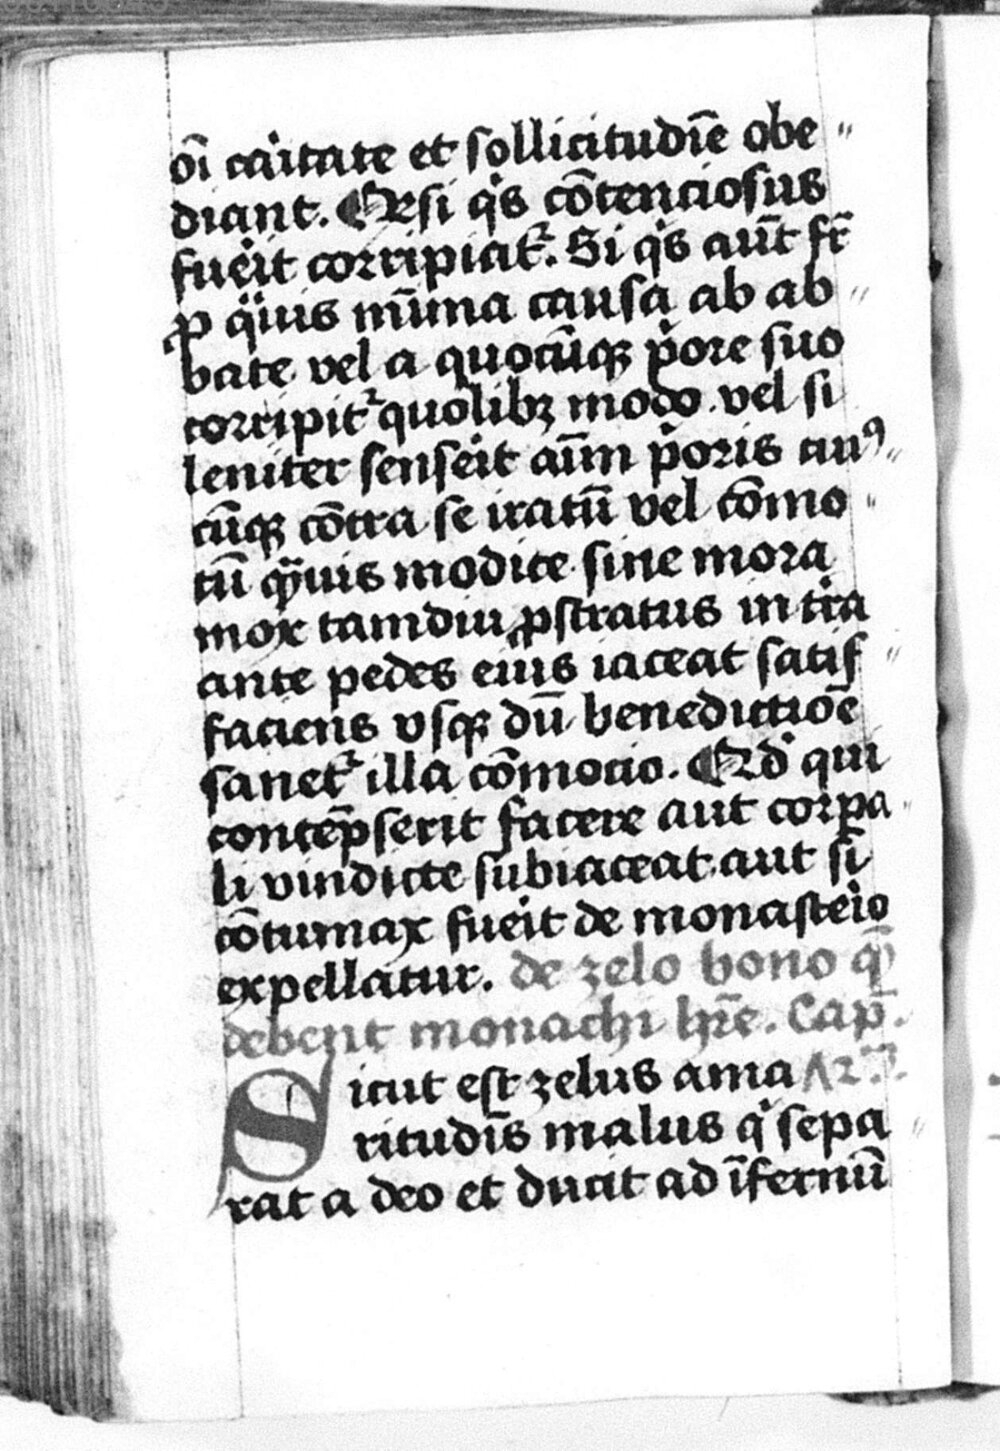 oı̄ caͥtate et sollicitudīe obe〃
diant. Qͦsi qͥs cōtenciosus
fueͥit corripiatᷣ. Si qͥs aūt fr̄
ꝓ qͣuis mīma causa ab ab〃
bate vel a quocūqꝫ pͥore suo
corripitᷣ quolibꝫ modo vel si
leuiter senseͥit aīm pͥoris cuiꝰ〃
cūqꝫ cōtra se iratū vel cōmo〃
tū qͣ̄uis modice sine mora
mox tamdiu ꝓstratus in tͥra
ante pedes eius iaceat satis〃
faciens vsqꝫ dū benedictiōē
sanetᷣ illa cōmocio. Qͩ qui
contēpserit facere aut corꝑa〃
li vindicte subiaceat aut si
cōtumax fueͥit de monasteͥio
expellatur. de zelo bono qͦ̄
debent monachi hr̄e. Cap̄.
Sicut est zelus ama
ritudīs malus qͥ sepa〃
rat a deo et ducit ad īfernū